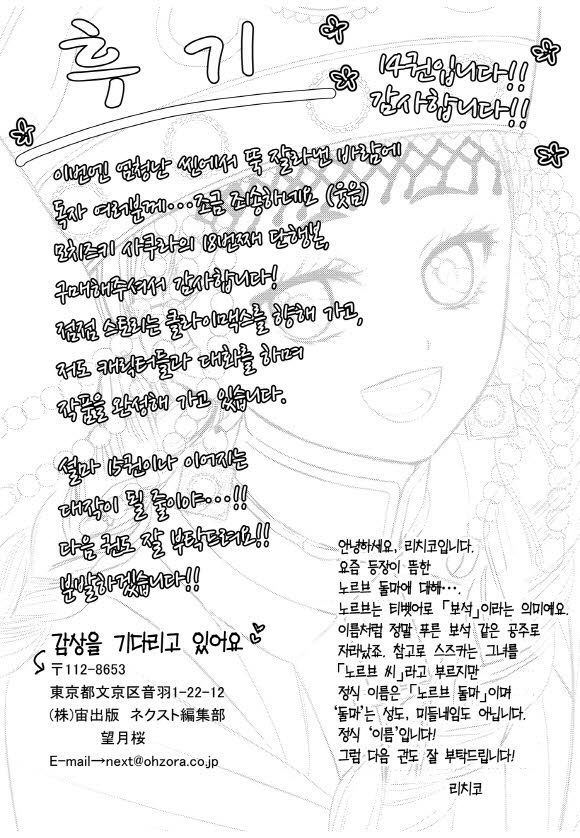 후기
14권입니다!!
감사합니다!!
이번엔 엄청난 씬에서 뚝 잘라낸 바람에
독자 여러분께…조금 죄송하네요 (웃음)
모치즈키 사쿠라의 18번째 단행본,
구매해주셔서 감사합니다!
점점 스토리는 클라이맥스를 향해 가고,
저도 캐릭터들과 대화를 하며
작품을 완성해 가고 있습니다.
설마 15권이나 이어지는
대작이 될 줄이야…!!
다음 권도 잘 부탁드려요!!
분발하겠습니다!!
감상을 기다리고 있어요
〒112-8653
東京都文京区音羽1-22-12
(株)宙出版 ネクスト編集部
望月桜
E-mail→next@ohzora.co.jp
안녕하세요, 리치코입니다.
요즘 등장이 뜸한
노르브 돌마에 대해….
노르브는 티벳어로 「보석」이라는 의미예요.
이름처럼 정말 푸른 보석 같은 공주로
자라났죠. 참고로 스즈카는 그녀를
「노르브 씨」라고 부르지만
정식 이름은 「노르브 돌마」이며
‘돌마’는 성도, 미들네임도 아닙니다.
정식 ‘이름’입니다!
그럼 다음 권도 잘 부탁드립니다!
리치코